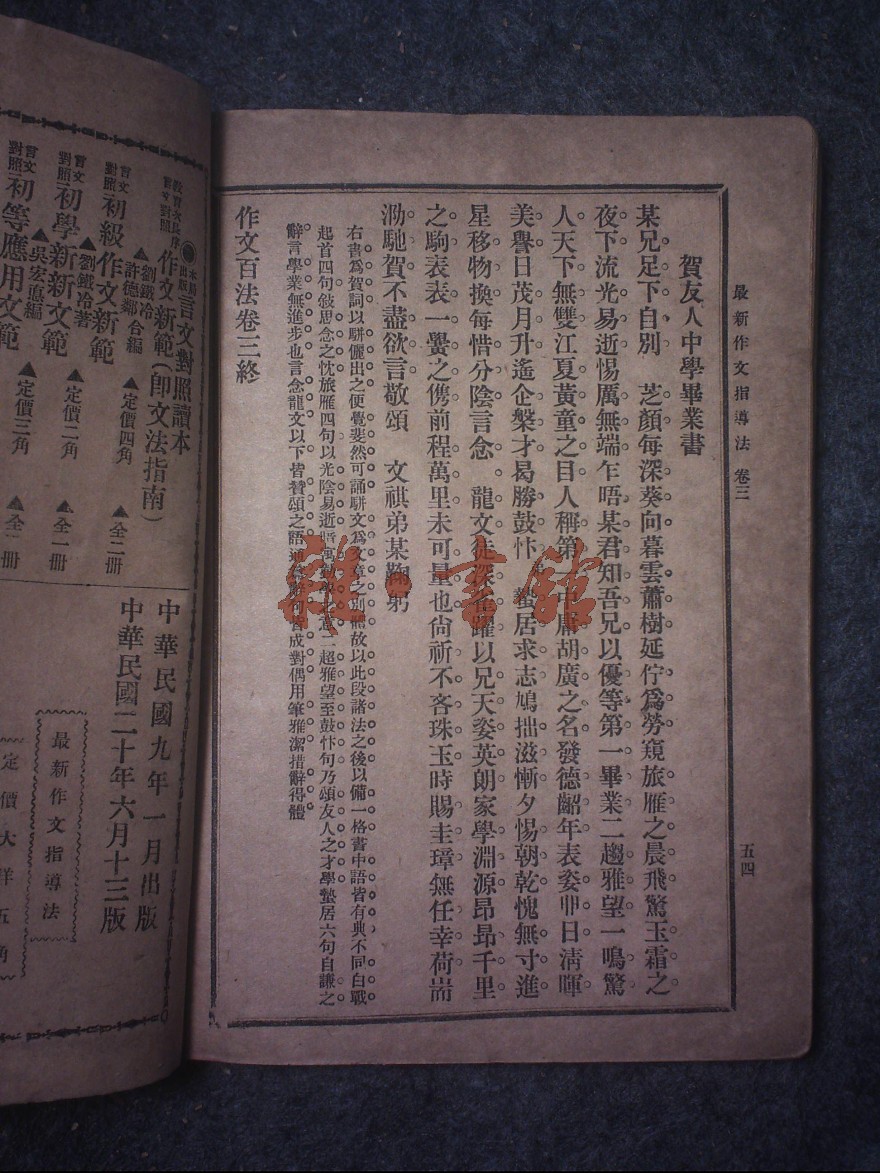 最新作文指導法 卷三
五四
賀友人中學畢業書
某兄足下自別 芝顏每深葵向暮雲蕭樹延佇爲勞窺旅雁之晨飛驚玉霜之
夜下流光易逝惕厲無端乍晤某君知吾兄以優等第一畢業二趨雅望一鳴驚
人天下無雙江夏黃童之目人稱第一中庸胡廣之名發德齠年表姿丱日淸暉
美譽日茂月升遙企槃才曷勝鼓忭 蟄居求志鳩拙滋慚夕惕朝乾愧無寸進
星移物換每惜分陰言念 龍文徒深雀躍以兄天姿英朗家學淵源昂昂千里
之駒表表一黌之儁前程萬里未可量也尙祈不吝珠玉時賜圭璋無任幸荷耑
泐馳賀不盡欲言敬頌 文祺弟某鞠躬
右書爲賀詞以駢儷出之便覺斐然可誦駢文爲文章之別體故以此段諸法之後以備一格書中語皆有典不同白戰
起首四句敍思念之忱旅雁四句以光陰易逝 二趨雅望至鼓忭句乃頌友人之才學蟄居六句自謙之
辭言學業無進步也言念龍文以下皆贊頌之語通 皆成對偶用筆雅潔措辭得體
作文百法卷三終
雜·書館
言文對照讀本
言文對照 作文新範(卽文法指南)
▲劉鐵冷 許德鄰 合編 ▲定價四角 ▲全二册
言文對照 初級作文新範
▲劉鐵冷著 ▲定價二角 ▲全一册
言文對照 初學新新文範
▲吳宏愿編 ▲定價三角 ▲全一册
言文對照 初等應用文範
中華民國九年一月出版
中華民國二十年六月十三版
最新作文指導法
定價大洋五角